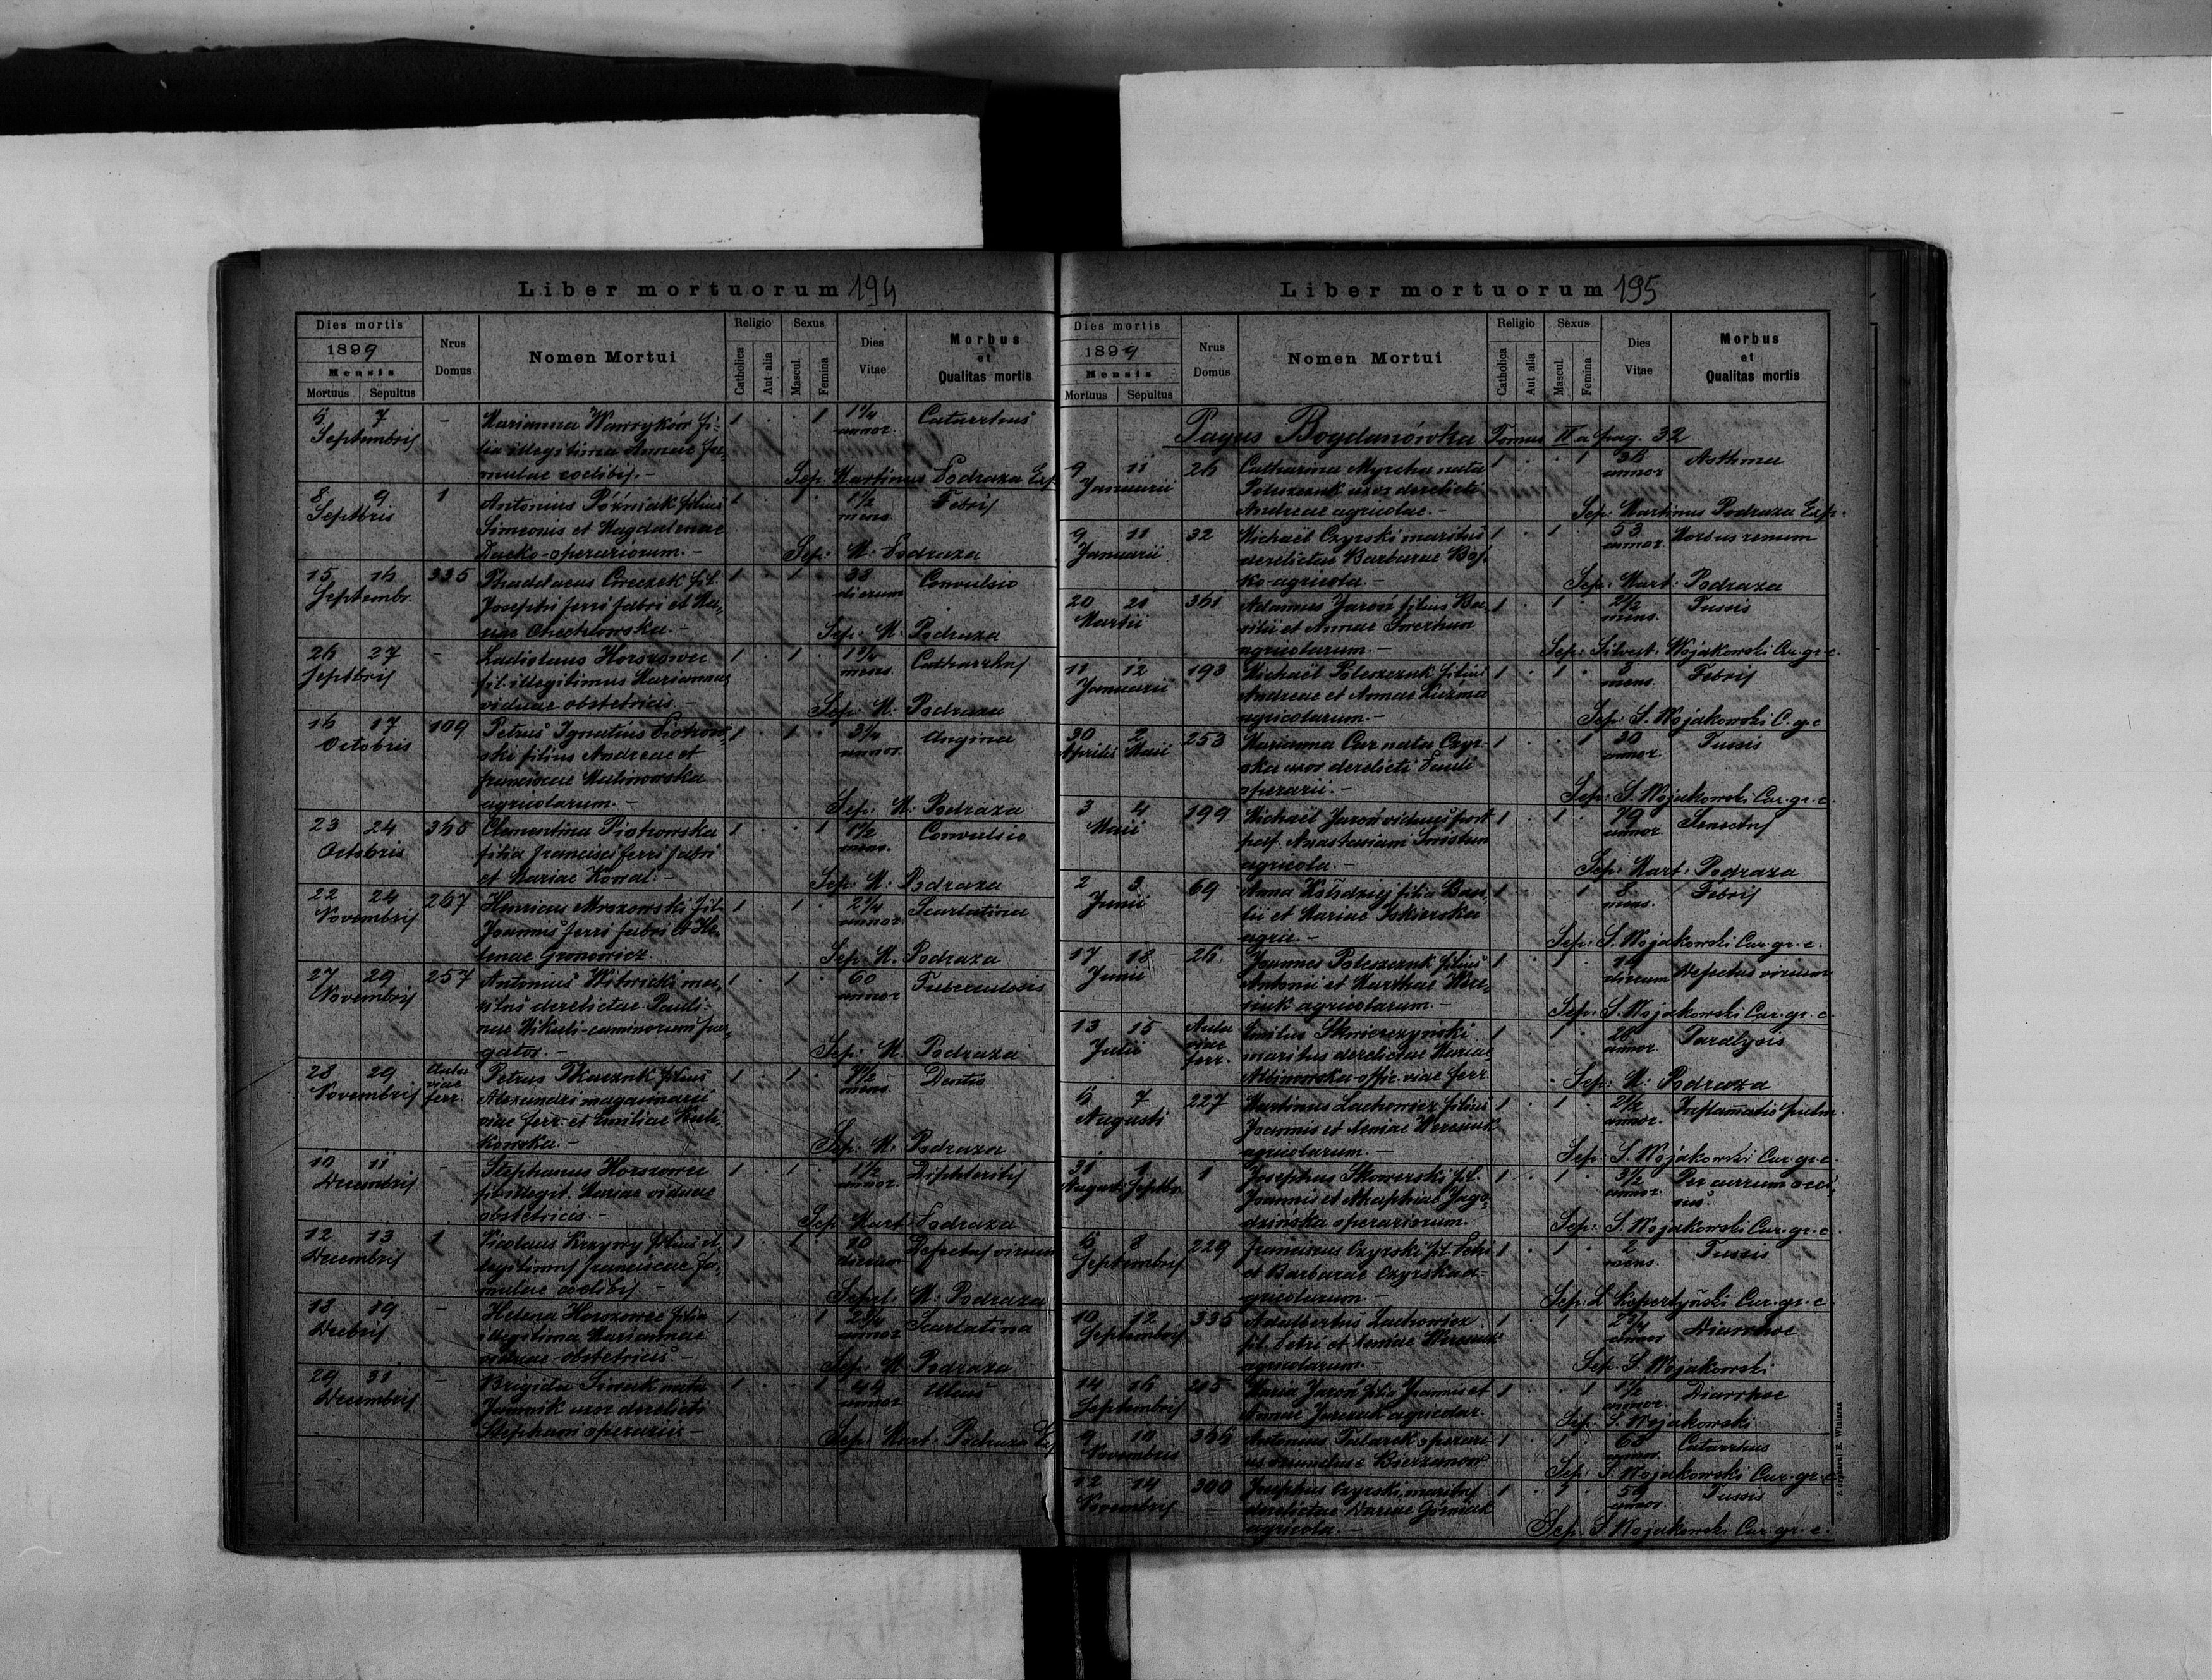 Liber mortuorum 194
Dies mortis
1899
Mensis
Mortuus Sepultus
Nrus
Domus
Nomen Mortui
Religio
Catholica
Aut alia
Sexus
Mascul.
Femina
Dies
Vitae
Morbus
et
Qualitas mortis
6 7 - Marianna Wawryków fi- 1 . . 1 1¼ Catarrhus
Septembris lia illegitima Annae fa- annor.
mulae coelibis. - Sep. Martinus Podraza Exp.
8 9 1 Antonius Póżniak filius 1 . 1 . 1½ Febris
Septbris Simeonis et Magdalenae mens.
Dacko-operariorum. - Sep: M: Podraza
15 16 335 Thaddaeus Cwieczek fil. 1 . 1 . 33 Convulsio
Septembr. Josephi ferri fabri et Ma- dierum
riae Chechlowska. - Sep: M: Podraza
26 27 - Ladislaus Horszowec 1 . 1 . mens. Catharrhus
Septbris fil. illegitimus Mariannae
viduae obstetricis. - Sep: M: Podraza
16 17 109 Petrus Ignatius Piotrow- 1 . 1 . 3¼ Angina
Octobris ski filius Andreae et annor.
franciscae Malinowska
agricolarum. - Sep: M: Podraza
23 24 365 Clementina Piotrowska 1 . . 1 1½ Convulsio
Octobris filia francisci ferri fabri mens.
et Mariae Kowal. - Sep: M: Podraza
22 24 267 Henricus Mrozowski fil. 1 . 1 . 2¼ Scarlatina
Novembris Joannis ferri fabri et He- annor.
lenae Gronowicz Sep. M. Podraza
27 29 257 Antonius Witwicki ma- 1 . 1 . 60 Tuberculosis
Novembris ritus derelictae Pauli- annor
nae Mikuli-caminorum pur-
gator. - Sep: M. Podraza
28 29 Aulae Petrus Tkaczuk filius 1 . 1 . 7½ Dentis
Novembris viae ferr. Alexandri magasinarii mens.
viae ferr. et Emiliae Kuli-
kowska. - Sep: M. Podraza
10 11 - Stephanus Horszowec 1 . 1 . 1½ Diphteritis
Decembris fil. illegit. Mariae viduae annor.
obstetricis. - Sep. Mart. Podraza
12 13 1 Nicolaus Krzywy filius il- 1 . 1 . 10 Defectus virium
Decembris legitimus franciscae fa- dierum
mulae coelibis - Sepel. M: Podraza
18 19 - Helena Horszowec filia 1 . . 1 Scarlatina
Decbris illegitima Mariannae annor.
viduae-obstetricis. - Sep. M. Podraza
29 31 - Brigida Siwak nata 1 . . 1 44 Ulcus
Decembris uxor derelicti annor.
Stephani operarii - Sep. Mart. Podraza
Liber mortuorum 195
Dies mortis
1899
Mensis
Mortuus Sepultus
Nrus
Domus
Nomen Mortui
Religio
Catholica
Aut alia
Sexus
Mascul.
Femina
Dies
Vitae
Morbus
et
Qualitas mortis
Pagus Bogdanówka Tomus II a pag. 32
9 11 26 Catharina Myrcha nata 1 . . 1 36 Asthma
Januarii Poleszczuk uxor derelicti annor
Andreae agricolae. - Sep: Martinus Podraza Exp.
9 11 32 Michaël Czyrski maritus 1 . 1 . 53 Morbus renum
Januarii derelictae Barbarae Boj- annor.
ko-agricola. - Sep: Mart: Podraza
20 21 361 Adamus Jaroń filius Ba- 1 . 1 . 2½ Tussis
Martii silii et Annae mens.
agricolarum. - Sep: Silvest. Wojakowski Cur. gr. c.
11 12 193 Michaël Poleszczuk filius 1 . 1 . mens. Febris
Januarii Andreae et Annae Kuzma
agricolarum. - Sep: S. Wojakowski C. g. c
30 2 253 Marianna Car nata Czyr- 1 . . 1 30 Tussis
Aprilis Maii ska uxor derelicti Pauli annor.
operarii. - Sep: S. Wojakowski Cur. gr. c.
3 4 199 Michaël Jaroń viduus post 1 . 1 . 79 Senectus
Maii Anastasiam annor
agricola. - Sep: Mart: Podraza
2 3 69 Anna Kołodziej filia Basi- 1 . . 1 8 Febris
Junii lii et Mariae Iskierska mens.
agric. - Sep: S. Wojakowski Cur. gr. c.
17 18 26 Joannes Poleszczuk filius 1 . 1 . dierum Defectus virium
Junii Antonii et Marthae Were-
siuk agricolarum. - Sep: S. Wojakowski Cur. gr. c.
13 15 Aula viae ferr. Emilus Skwierczyński 1 . 1 . 28 Paralysis
Julii maritus derelictae Mariae annor.
Albinowska-offic. viae ferr. Sep: M: Podraza
6 7 227 Martinus Lachowicz filius 1 . 1 . 2½ Inflammatio pulm.
Augusti Joannis et Mariae Weresiuk annor.
agricolarum. - Sep: S. Wojakowski Cur. gr. c.
31 1 1 Josephus Skowerski fil. 1 . 1 . 3½ Per currum occi-
Augusti Septbr. Joannis et Jago- annor. sus
dzińska operariorum. Sep: S. Wojakowski Cur. gr. c.
6 8 229 Franciscus Czyrski fil. Petri 1 . 1 . 2 Tussis
Septembris et Barbarae Czyrska a- mens.
gricolarum. - Sep: Cur. gr. c
10 12 335 Adalbertus Lachowicz 1 . 1 . 2¾ Diarrhoe
Septembris fil. Petri et Weresiuk annor
agricolarum. - Sep. S. Wojakowski
14 16 215 Maria Jaroń filia Joannis et 1 . . 1 1½ Diarrhoe
Septembris Annae agricolar. annor.
Sep: S. Wojakowski
9 10 366 Antonius operari- 1 . 1 . 68 Catarrhus
Novembris us Bierzanow annor.
Sep: S. Wojakowski Cur. gr. c.
12 14 300 Josephus Czyrski, maritus 1 . 1 . 59 Tussis
Novembris derelictae Mariae Górniak annor.
agricola. - Sep. S. Wojakowski Cur. gr. c.
Z drukarni E. Winiarza